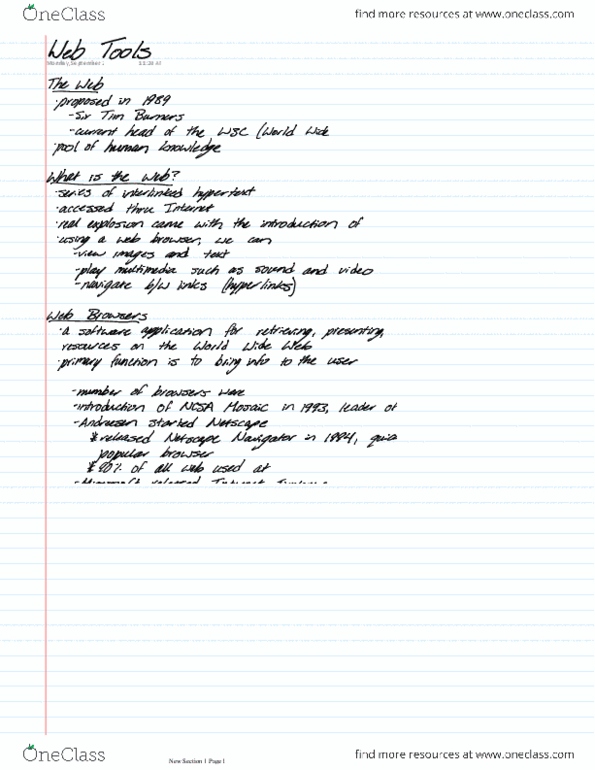 OneClass
find more resources at www.oneclass.com
Web Tools
Monday, September
11:28 AM
The Web
·proposed in 1989
-Sir Tim Burners
-current head of the W3C (World Wide
·pool of human knowledge
What is the Web?
·series of interlinked hypertext
·accessed thru Internet
·real explosion came with the introduction of
·using a web browser, we can
-view images and text
-play multimedia such as sound and video
-navigate b/w links (hyperlinks)
Web Browsers
·a software application for retrieving, presenting,
resources on the World Wide Web
·primary function is to bring info to the user
-number of browsers were
-introduction of NCSA Mosaic in 1993, leader of
-Andreesen started Netscape
*released Netscape Navigator in 1994,
popular browser
*90% of all web used at
-Microsoft released Internet
OneClass
New Section 1 Page 1
find more resources at www.oneclass.com